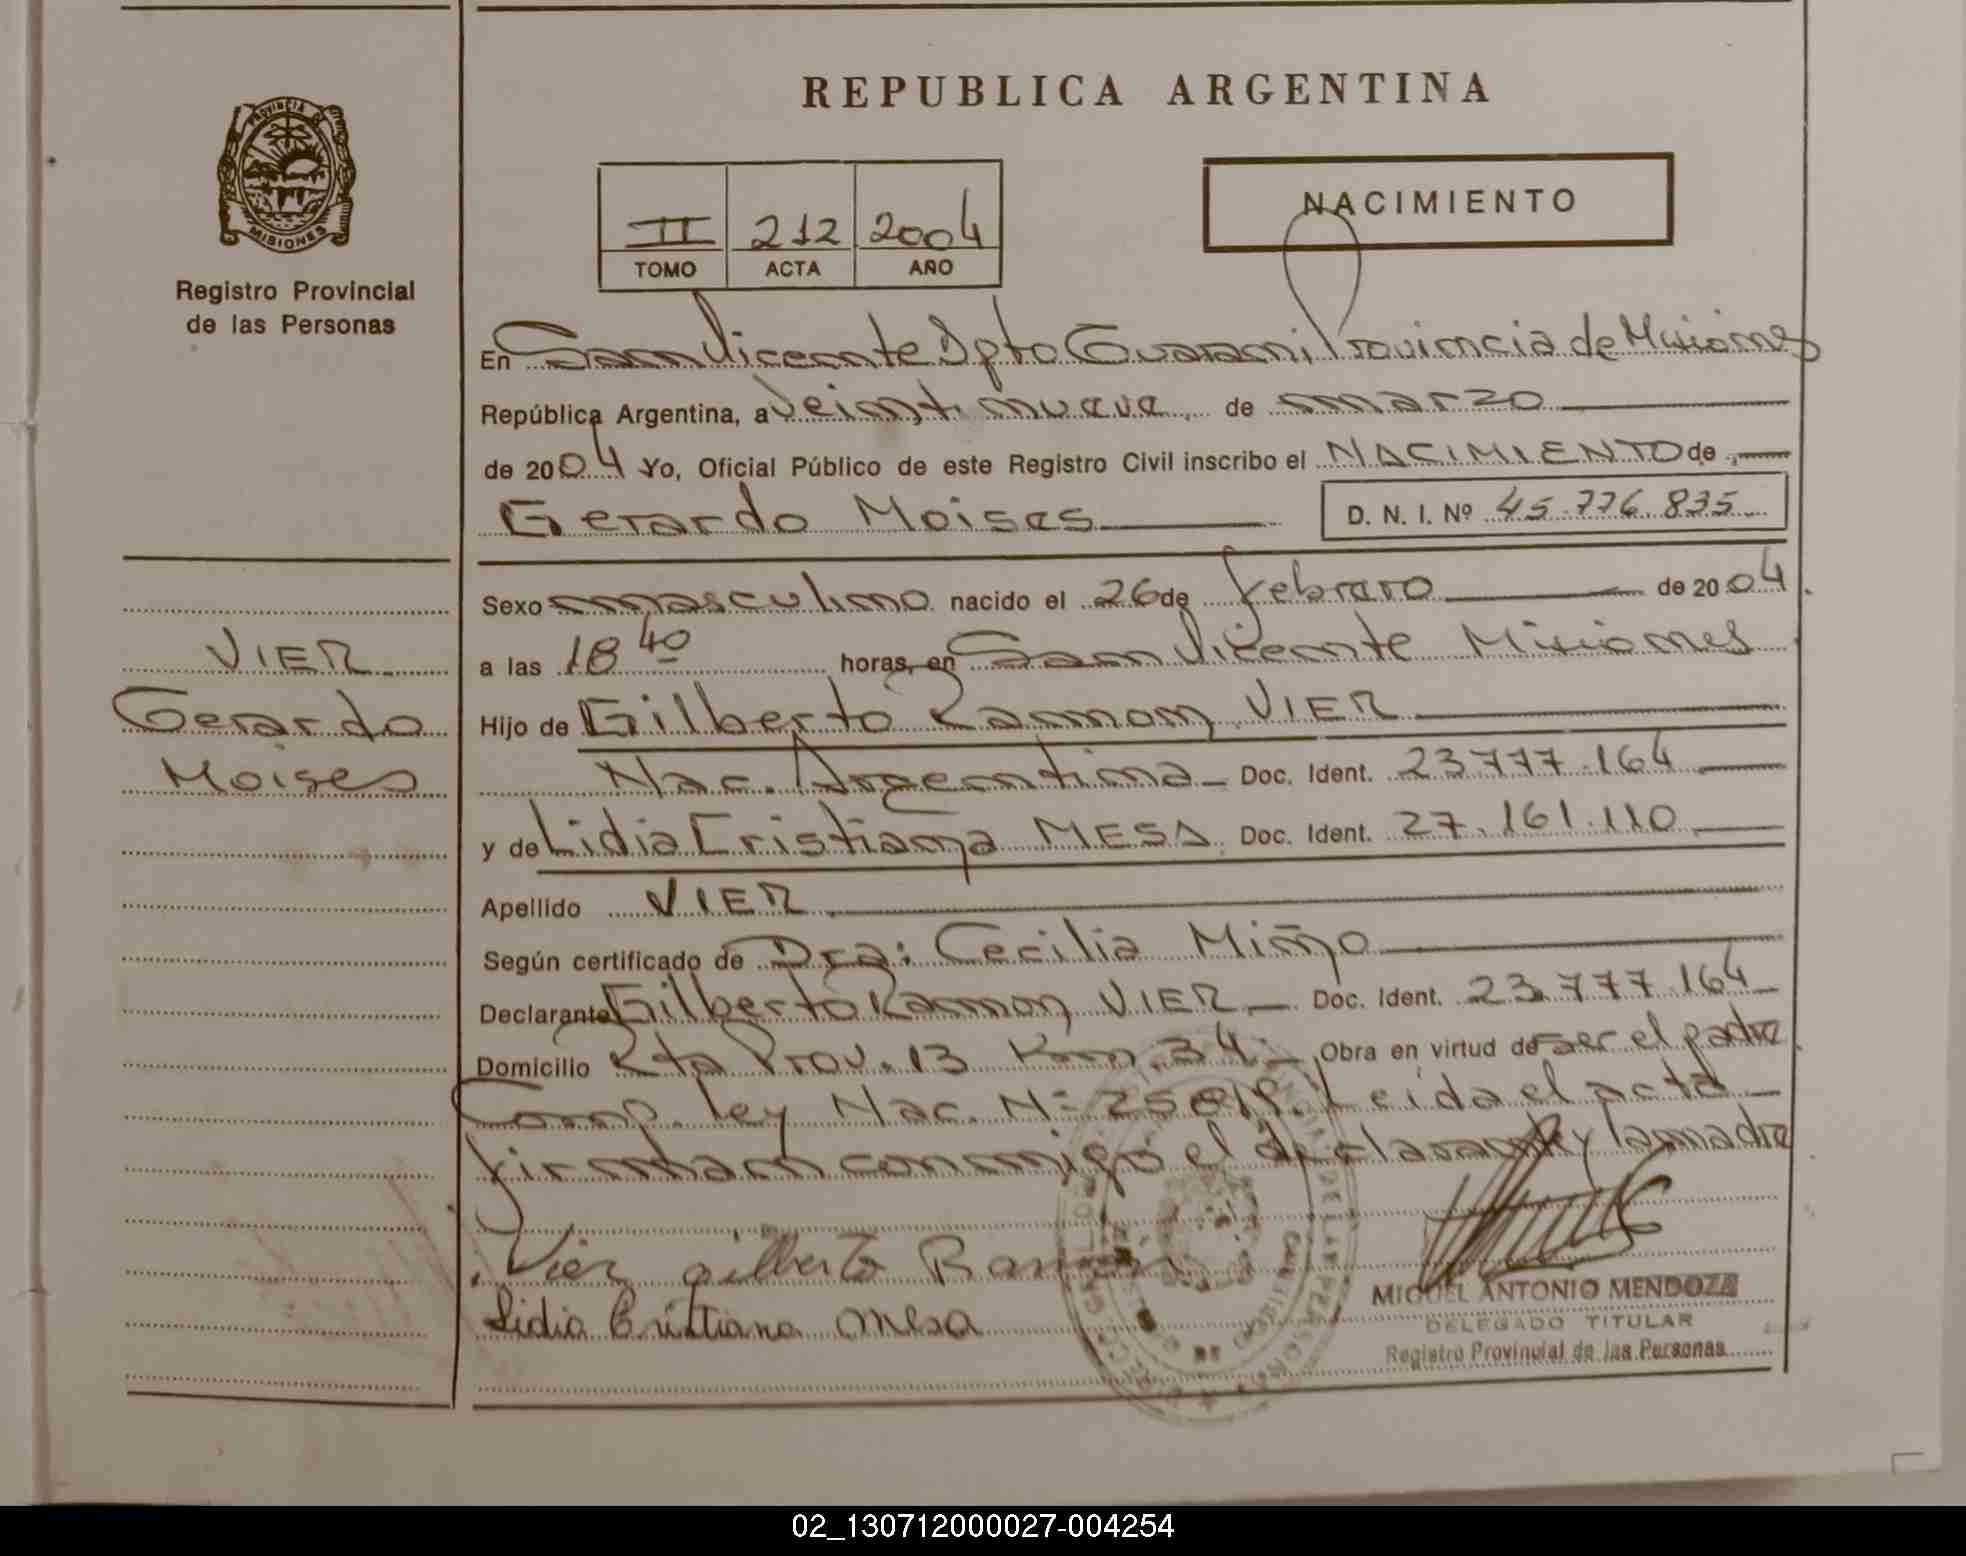 REPUBLICA ARGENTINA
PROVINCIA DE MISIONES
Registro Provincial
de las Personas
NACIMIENTO
II 212 2004
TOMO ACTA AÑO
En San Vicente Dpto Guarani, Provincia de Misiones
República Argentina, a veintinueve de marzo
de 2004 Yo, Oficial Público de este Registro Civil inscribo el NACIMIENTO de
Gerardo Moises D. N. I. Nº 45.776.835
Sexo masculino nacido el 26 de febrero de 2004
a las 18 40 horas, en San Vicente Misiones
VIER
Gerardo
Moises
Hijo de Gilberto Ramon VIER
Nac. Argentina Doc. Ident. 23.777.164
y de Lidia Cristiana MESA Doc. Ident. 27.161.110
Apellido VIER
Según certificado de Dra: Cecilia Miño
Declarante Gilberto Ramon VIER Doc. Ident. 23.777.164
Domicilio Rta Prov. 13 Km 34 Obra en virtud de ser el padre
Comp. ley Nac. Nº Leida el acta
firman conmigo el declarante y la madre
Vier gilberto Ramon
Lidia Cristiana Mesa
MIGUEL ANTONIO MENDOZA
DELEGADO TITULAR
Registro Provincial de las Personas
02_130712000027-004254